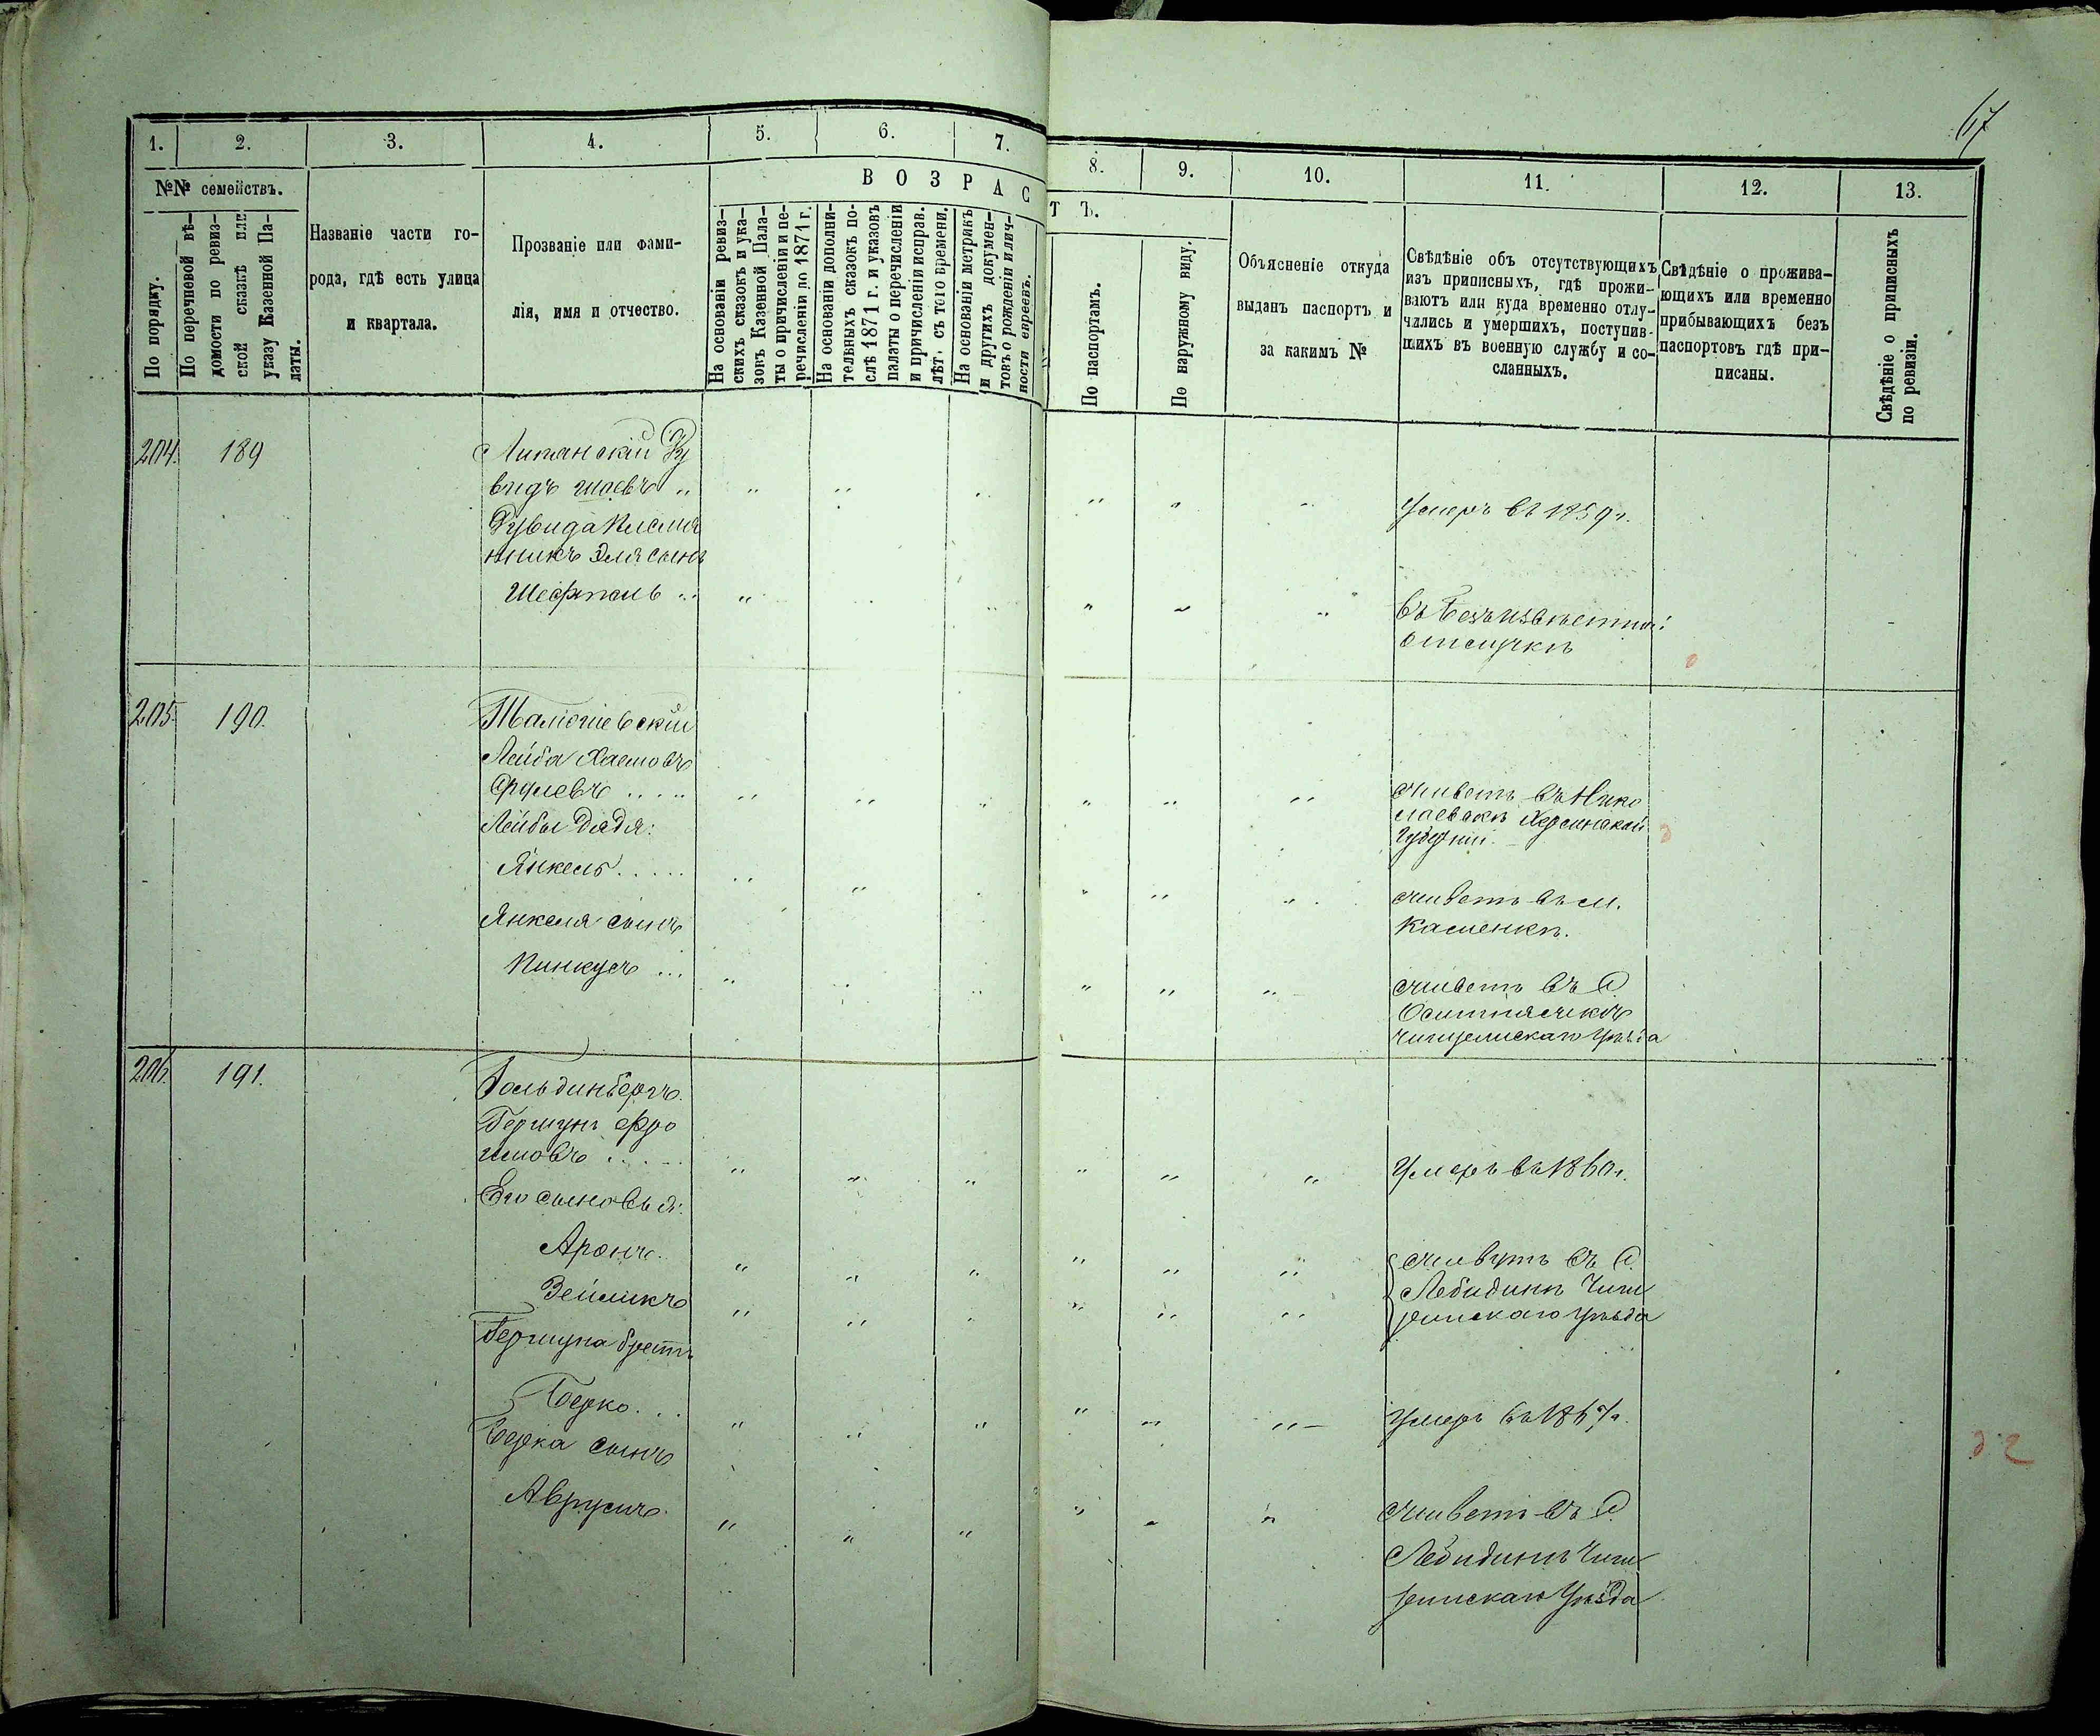 67
1. 2. 3. 4. 5. 6. 7. 8. 9. 10. 11. 12. 13.
№№ семействъ.
По порядку.
По перечневой вѣ-
домости по ревиз-
ской сказкѣ или
указу Казенной Па-
латы.
Названіе части го-
рода, гдѣ есть улица
и квартала.
Прозваніе или фами-
лія, имя и отчество.
ВОЗРАСТЪ.
На основаніи ревиз-
скихъ сказокъ и ука-
зокъ Казенной Пала-
ты о причисленіи и пе-
речисленіи до 1871 г.
На основаніи дополни-
тельныхъ сказокъ по-
слѣ 1871 г. и указовъ
палаты о перечисленіи
и причисленіи исправ.
лѣт. съ того времени.
На основаніи метрикъ
и другихъ докумен-
товъ о рожденіи и лич-
ности евреевъ.
По паспортамъ.
По наружному виду.
Объясненіе откуда
выданъ паспортъ и
за какимъ №
Свѣдѣніе объ отсутствующихъ
изъ приписныхъ, гдѣ прожи-
ваютъ или куда временно отлу-
чились и умершихъ, поступив-
шихъ въ военную службу и со-
сланныхъ.
Свѣдѣніе о прожива-
ющихъ или временно
прибывающихъ безъ
паспортовъ гдѣ при-
писаны.
Свѣдѣніе о приписныхъ
по ревизіи.
204. 189
Литанскій Ру
видъ Шоевъ " " " " " " " Умеръ въ 1859 г.
Рувида Племя
нникъ Эля сынъ
Шефтель " " " " " " Въ безъизвѣстной
отлучкѣ
205. 190.
Лейба Хаимовъ
Срулевъ " " " " " " живетъ въ Нико
лаевскѣ Херсонской
Губерніи.
Лейбы дядя:
Янкель " " " " " " живетъ въ м.
Каменкѣ.
Янкеля сынъ
Пинкусъ " " " " " " живетъ въ С.
Оситняжкѣ
Чигиринскаго Уѣзда
206. 191.
Гольдинбергъ
Гершунъ Фро
имовъ " " " " " " Умеръ въ 1860 г.
Его сыновья:
Аронъ " " " " " " живутъ въ С.
Зейликъ " " " " " " Лебидинѣ Чиги
ринскаго Уѣзда
Гершуна братъ
Берко " " " " " " Умеръ въ 1867 г.
Берка сынъ
Аврумъ " " " " " " живетъ въ С.
Лебидинѣ Чиги
ринскаго Уѣзда